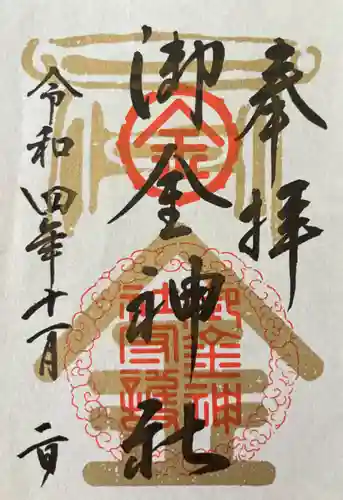 奉拝
御金神社
令和四年十一月二日
金
御金神社守護